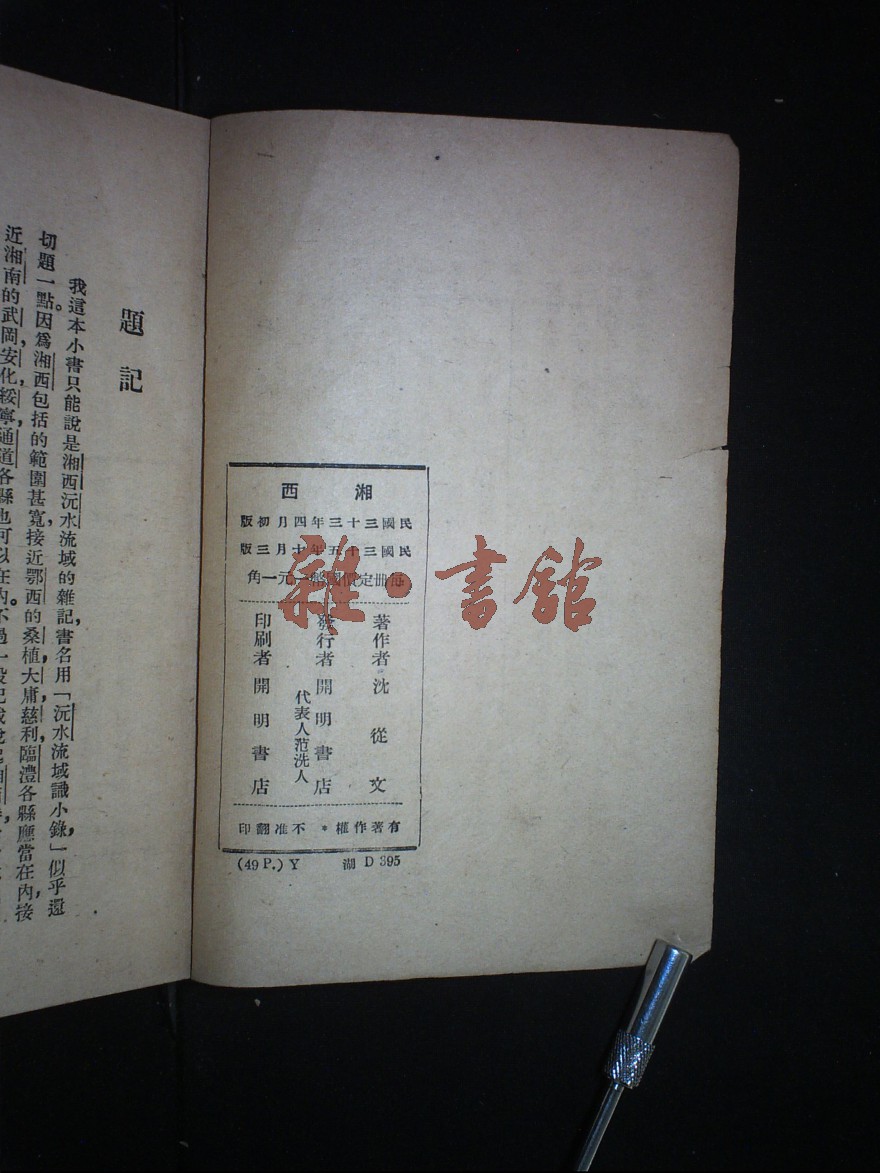 湘西
民國三十三年四月初版
民國三十五年十月三版
每冊定價國幣一元一角
著作者 沈從文
發行者 開明書店
代表人范洗人
印刷者 開明書店
有著作權*不准翻印
(49 P.) Y 湖 D 395
雜·書館
題記
我這本小書只能說是湘西沅水流域的雜記，書名用「沅水流域識小錄」，似乎還
切題一點。因爲湘西包括的範圍甚寬，接近鄂西的桑植，大庸，慈利，臨澧各縣應當在內，接
近湘南的武岡，安化，綏寧，通道各縣也可以在內。不過一般